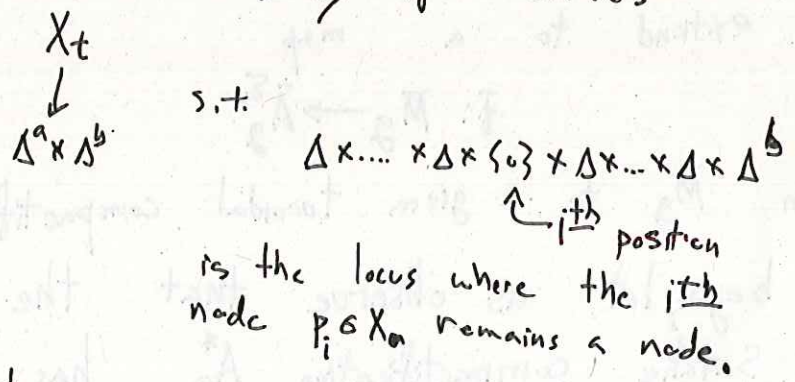 X_t
↓
Δ^a × Δ^b
s.t.
Δ × .... × Δ × {0} × Δ × ... × Δ × Δ^b
ith position
is the locus where the ith
node p_i ∈ X_0 remains a node.